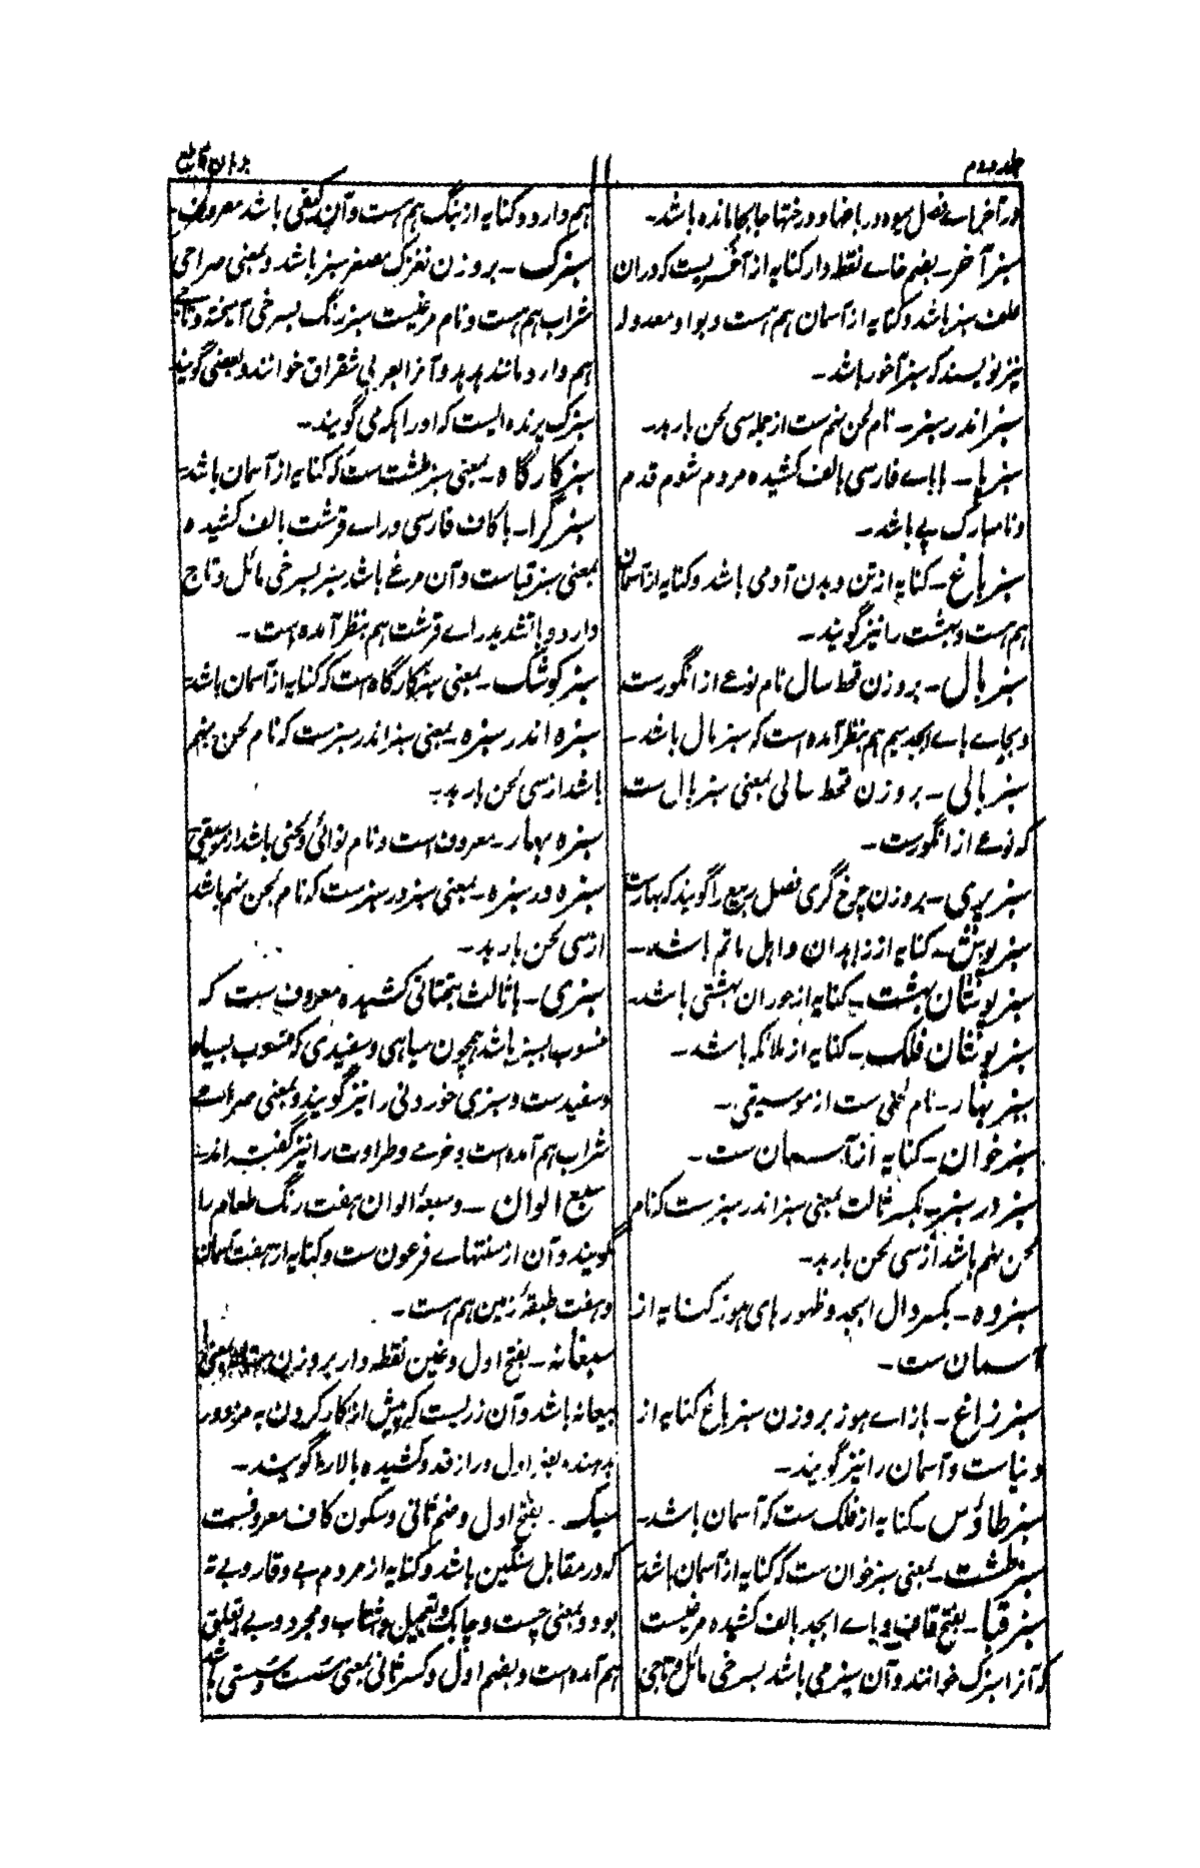 جلد دوم
برہان قاطع
در آخر ہاے فصل میوہ در باغہا و درختہا جابجا ماندہ باشد۔
سبز آخر۔ بضم خاے نقطہ دار کنایہ از آخریست کہ دران
علف سبز باشد و کنایہ از آسمان ہم ہست و بواو معدولہ
نیز نویسند کہ سبز آخور باشد۔
سبز اندر سبز۔ نام لحن نہم ست از جملہ سی لحن باربد۔
سبز پا۔ باباے فارسی بالف کشیدہ مردم شوم قدم
و نامبارک پے باشد۔
سبز باغ۔ کنایہ از تن و بدن آدمی باشد و کنایہ از آسمان
ہم ہست و بہشت را نیز گویند۔
سبز بال۔ بروزن قحط سال نام نوعے از انگورست
و بجاے باے ابجد میم ہم بنظر آمدہ است کہ سبز مال باشد۔
سبز بالی۔ بروزن قحط سالی بمعنی سبز بال ست
کہ نوعے از انگورست۔
سبز پری۔ بروزن چرخ گری فصل ربیع را گویند کہ بہارست
سبز پوش۔ کنایہ از زاہدان و اہل ماتم باشد۔
سبز پوشان بہشت۔ کنایہ از حوران بہشتی باشد۔
سبز پوشان فلک۔ کنایہ از ملائکہ باشد۔
سبز بہار۔ نام لحنی ست از موسیقی۔
سبز خوان۔ کنایہ از آسمان ست۔
سبز در سبز۔ بکسر ثالث بمعنی سبز اندر سبزست کہ نام
لحن نہم باشد از سی لحن باربد۔
سبز دہ۔ بکسر دال ابجد و ظہور ہای ہوز کنایہ از
آسمان ست۔
سبز زاغ۔ بازاے ہوز بروزن سبز باغ کنایہ از
دنیاست و آسمان را نیز گویند۔
سبز طاؤس۔ کنایہ از فلک ست کہ آسمان باشد۔
سبز طشت۔ بمعنی سبز خوان ست کہ کنایہ از آسمان باشد
سبز قبا۔ بفتح قاف و باے ابجد بالف کشیدہ مرغیست
کہ آنرا سبزک خوانند و آن سبز می باشد بسرخی مائل و تاجی
ہم دارد و کنایہ از بنگ ہم ہست و آن کیفی باشد معروف۔
سبزک۔ بروزن نغزک مصغر سبز باشد و بمعنی صراحی
شراب ہم ہست و نام مرغیست سبز رنگ بسرخی آمیختہ و تاجے
ہم دارد مانند ہدہد و آنرا بعربی شقراق خوانند و بعضی گویند
سبزک پرندہ ایست کہ او را بکہ می گویند۔
سبز کارگاہ۔ بمعنی سبز طشت ست کہ کنایہ از آسمان باشد
سبز گرا۔ باکاف فارسی و راے قرشت بالف کشیدہ
بمعنی سبز قباست و آن مرغے باشد سبز بسرخی مائل و تاج
دارد و باتشدید راے قرشت ہم بنظر آمدہ است۔
سبز کوشک۔ بمعنی سبز کارگاہ ست کہ کنایہ از آسمان باشد
سبزہ اندر سبزہ۔ بمعنی سبز اندر سبزست کہ نام لحن نہم
باشد از سی لحن باربد۔
سبزہ بہار۔ معروف است و نام نوائی و لحنی باشد از موسیقی
سبزہ در سبزہ۔ بمعنی سبز در سبزست کہ نام لحن نہم باشد
از سی لحن باربد۔
سبزی۔ باثالث بتحتانی کشیدہ معروف ست کہ
منسوب بسبز باشد ہمچون سیاہی و سفیدی کہ منسوب بسیاہ
و سفیدست و سبزی خوردنی را نیز گویند و بمعنی صراحی
شراب ہم آمدہ است و خرمے و طراوت را نیز گفتہ اند۔
سبع الوان۔ و سبعۂ الوان ہفت رنگ طعام را
گویند و آن از سنتہاے فرعون ست و کنایہ از ہفت آسمان
و ہفت طبقۂ زمین ہم ہست۔
سبغانہ۔ بفتح اول و غین نقطہ دار بروزن
بیعانہ باشد و آن زریست کہ پیش از کار کردن بہ مزدور
بدہند و بضم اول دراز قد و کشیدہ بالا را گویند۔
سبک۔ بفتح اول و ضم ثانی و سکون کاف معروفست
کہ در مقابل سنگین باشد و کنایہ از مردم بے وقار و بے تہ
بود و بمعنی چست و چابک و تعجیل و شتاب و مجرد و بے تعلق
ہم آمدہ است و بضم اول و کسر ثانی بمعنی سست و سستی باشد